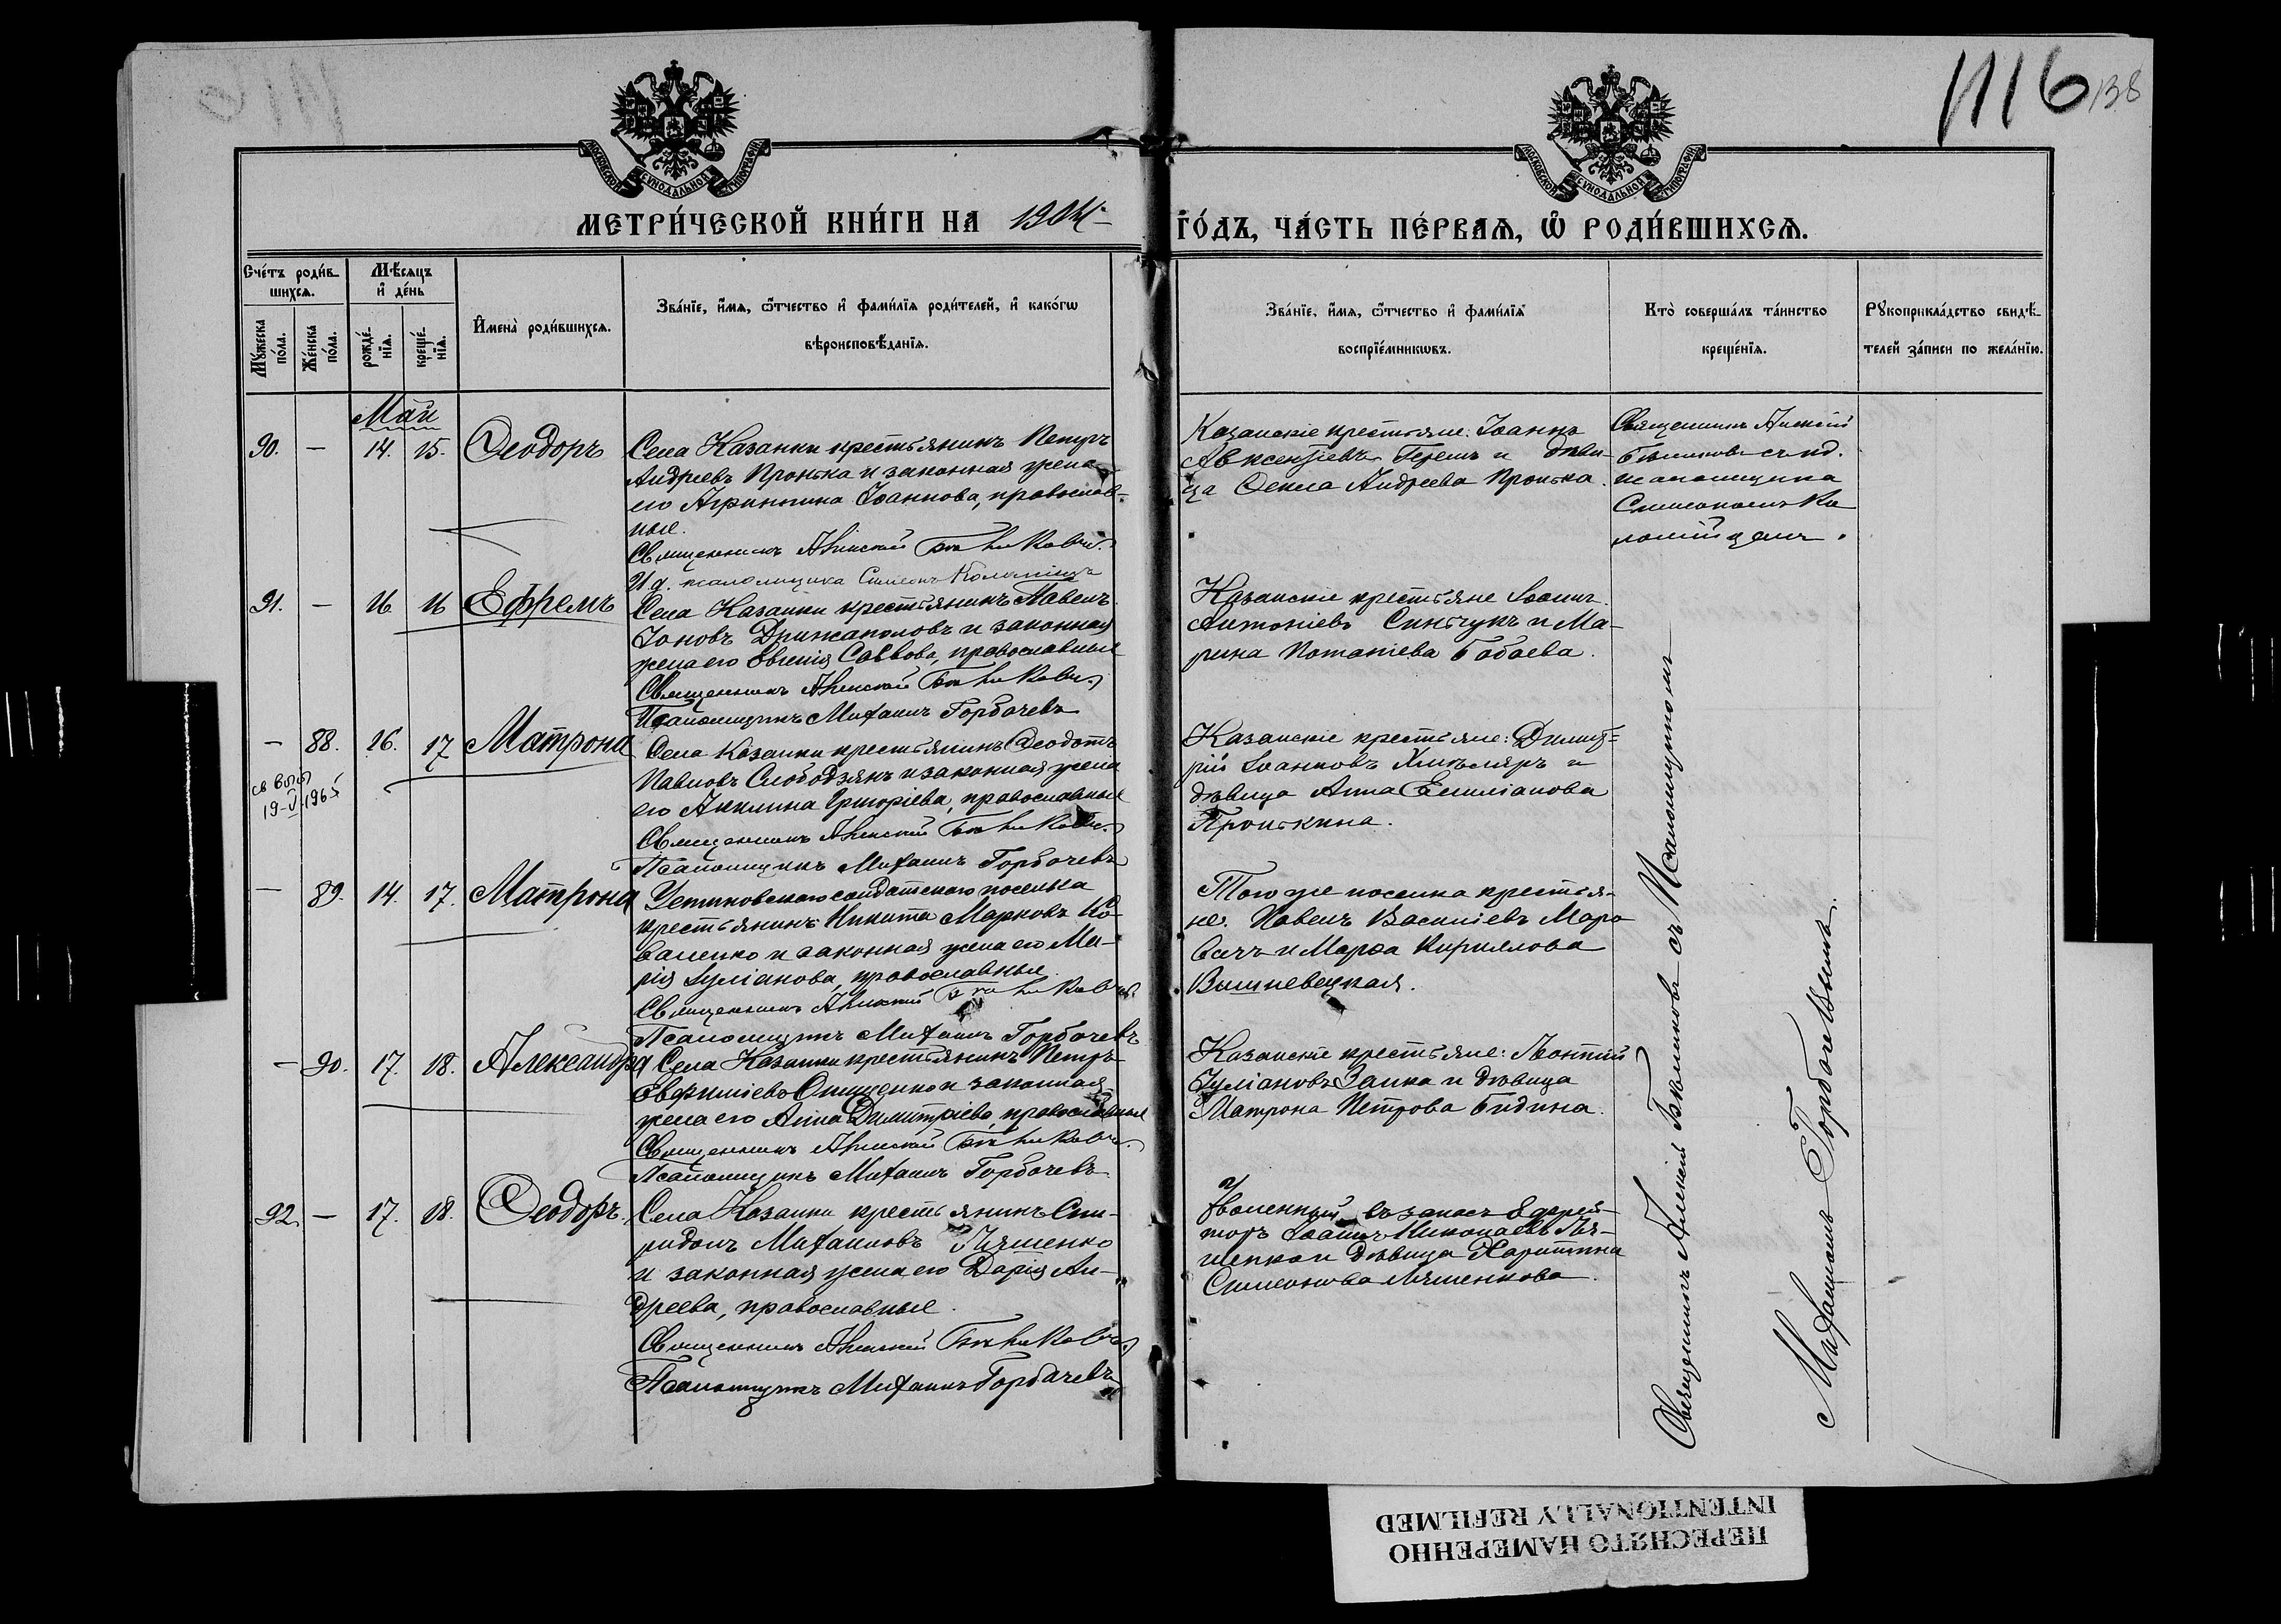 1116
138
МОСКОВСКОЙ СѴНОДАЛЬНОЙ ТИПОГРАФІИ
МОСКОВСКОЙ СѴНОДАЛЬНОЙ ТИПОГРАФІИ
МЕТРИ́ЧЕСКОЙ КНИ́ГИ НА 1904
ГО́ДЪ, ЧА́СТЬ ПЕ́РВАѦ, Ѽ РОДИ́ВШИХСѦ.
Сче́тъ роди́в-
шихсѧ.
Мѣ́сѧцъ
и҆ де́нь
Мꙋ́жеска
по́ла.
Же́нска
по́ла.
рожде́-
нїѧ.
креще́-
нїѧ.
И҆мена̀ роди́вшихсѧ.
Зва́нїе, и҆́мѧ, ѻ҆́тчество и҆ фами́лїѧ роди́телей, и҆ како́гѡ
вѣроисповѣ́данїѧ.
Зва́нїе, и҆́мѧ, ѻ҆́тчество и҆ фами́лїѧ
воспрїе́мникѡвъ.
Кто̀ соверша́лъ та́инство
креще́нїѧ.
Рꙋкоприкла́дство свидѣ́-
телей за́писи по жела́нїю.
Май
90. — 14. 15. Ѳеодоръ
Села Казанки крестьянинъ Петръ
Андреевъ Пронька и законная жена
его Агриппина Іоаннова, православ-
ные.
Священникъ Алексій Бѣликовъ
И д. псаломщика Симеонъ Коломіецъ
Казанскіе крестьяне: Іоаннъ
Авксентіевъ и дѣви-
ца Ѳекла Андреева Пронька.
Священникъ Алексій
Бѣликовъ съ и д.
псаломщика
Симеономъ Ко
ломійцемъ.
91. — 16 16 Ефремъ
Села Казанки крестьянинъ Павелъ
Іоновъ Држаполовъ и законная
жена его Евгенія Саввова, православные
Священникъ Алексій Бѣликовъ
Псаломщикъ Михаилъ Горбачевъ
Казанскіе крестьяне Іоаннъ
Антоніевъ Синьчукъ и Ма-
рина Потапіева Бабаева.
— 88. 16. 17 Матрона
св выд
19-V-1965
Села Казанки крестьянинъ Ѳеодотъ
Павловъ Слободзянъ и законная жена
его Акилина Григоріева, православные
Священникъ Алексій Бѣликовъ
Псаломщикъ Михаилъ Горбачевъ
Казанскіе крестьяне: Димит-
рій Іоанновъ и
дѣвица Анна Емиліанова
Пронькина.
— 89. 14. 17. Матрона
Устиновскаго солдатскаго поселка
крестьянинъ Никита Марковъ Ко-
валенко и законная жена его Ма-
рія Іуліанова, православные.
Священникъ Алексій Бѣликовъ
Псаломщикъ Михаилъ Горбачевъ
Того же поселка крестья-
не: Павелъ Василіевъ Мара
и Марѳа Кириллова
Вишневецкая.
— 90. 17. 18. Александра
Села Казанки крестьянинъ Петръ
Евфиміевъ Онищенко и законная
жена его Анна Димитріева, православные
Священникъ Алексій Бѣликовъ
Псаломщикъ Михаилъ Горбачевъ
Казанскіе крестьяне: Леонтій
Іуліановъ Заика и дѣвица
Матрона Петрова Бидина.
92. — 17. 18. Ѳеодоръ.
Села Казанки крестьянинъ Спи-
ридонъ Михаиловъ Ляшенко
и законная жена его Дарія Ан-
дреева, православные.
Священникъ Алексій Бѣликовъ
Псаломщикъ Михаилъ Горбачевъ
Уволенный въ запасъ Ефрей-
торъ Іоаннъ Николаевъ Ля-
шенко и дѣвица Харитина
Симеонова Ляшенкова.
Священникъ Алексій Бѣликовъ съ Псаломщикомъ
Михаиломъ Горбачевымъ.
ПЕРЕСНЯТО НАМЕРЕННО
INTENTIONALLY REFILMED